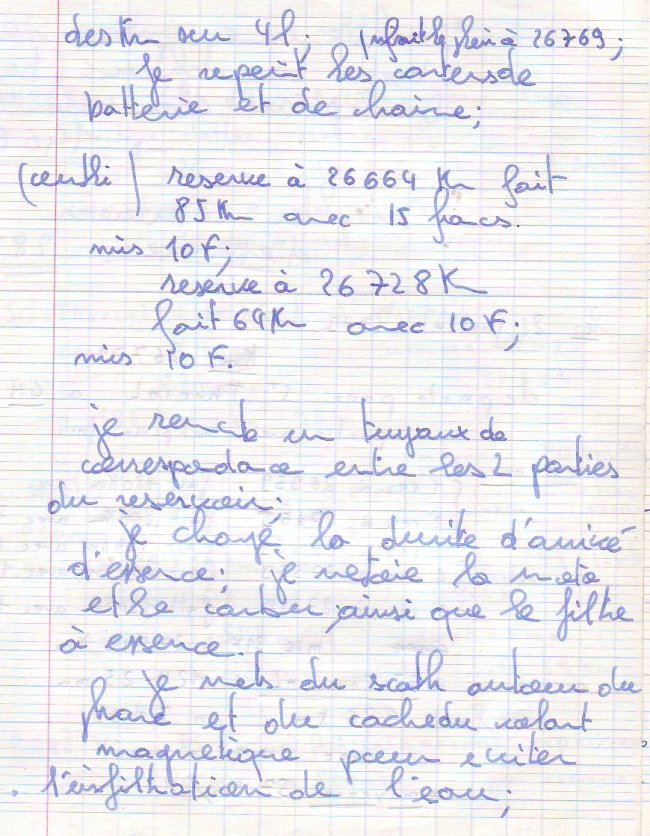 des Km sur 4l; fait le plein à 26769;
je repeint les carters de
batterie et de chaine;
reserve à 26664 Km fait
85 Km avec 15 francs.
mis 10 F;
reserve à 26728 K
fait 64 Km avec 10 F;
mis 10 F.
je remets un tuyaux de
correspondance entre les 2 parties
du reservoir;
je change la durite d'arrivé
d'essence; je netoie la moto
et le carbu ainsi que le filtre
à essence.
je mets du scoth autour du
phare et du cache du volant
magnetique pour eviter
l'infiltration de l'eau;